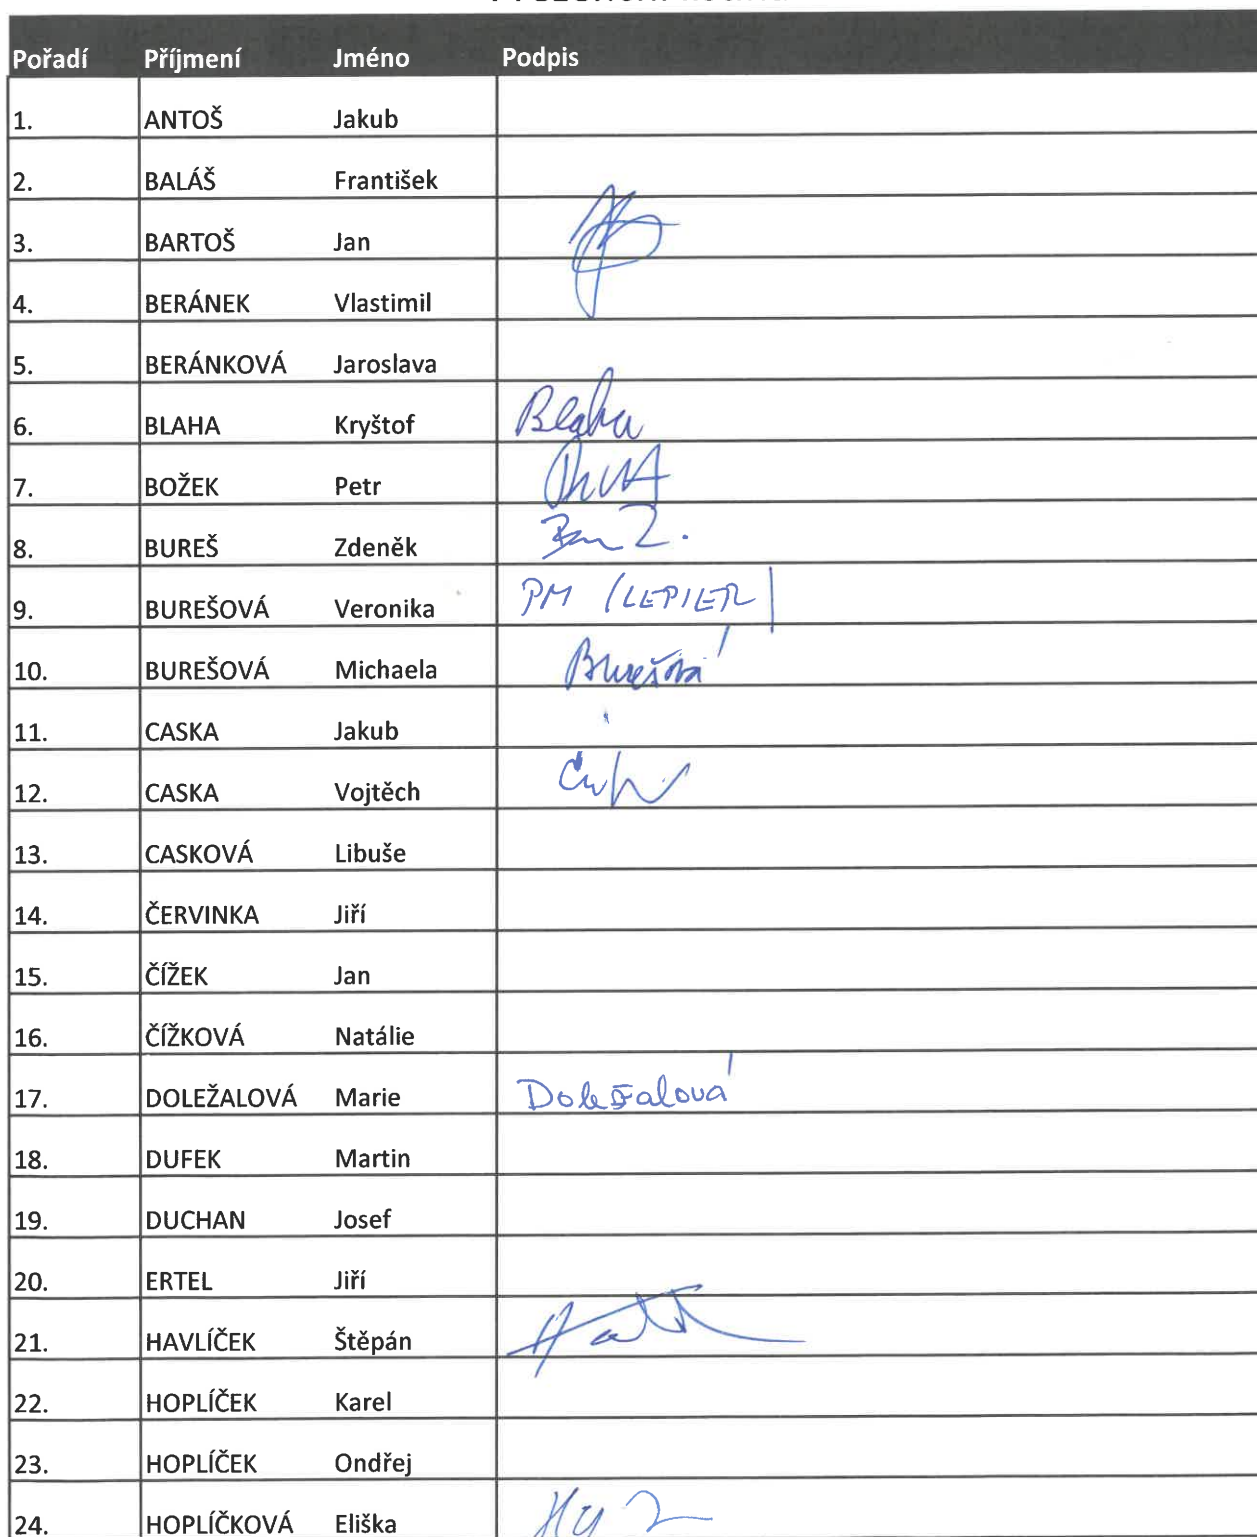 Pořadí Příjmení Jméno Podpis
1. ANTOŠ Jakub
2. BALÁŠ František
3. BARTOŠ Jan
4. BERÁNEK Vlastimil
5. BERÁNKOVÁ Jaroslava
6. BLAHA Kryštof Blaha
7. BOŽEK Petr
8. BUREŠ Zdeněk
9. BUREŠOVÁ Veronika PM (LEPIER)
10. BUREŠOVÁ Michaela Burešová
11. CASKA Jakub
12. CASKA Vojtěch
13. CASKOVÁ Libuše
14. ČERVINKA Jiří
15. ČÍŽEK Jan
16. ČÍŽKOVÁ Natálie
17. DOLEŽALOVÁ Marie Doležalová
18. DUFEK Martin
19. DUCHAN Josef
20. ERTEL Jiří
21. HAVLÍČEK Štěpán
22. HOPLÍČEK Karel
23. HOPLÍČEK Ondřej
24. HOPLÍČKOVÁ Eliška